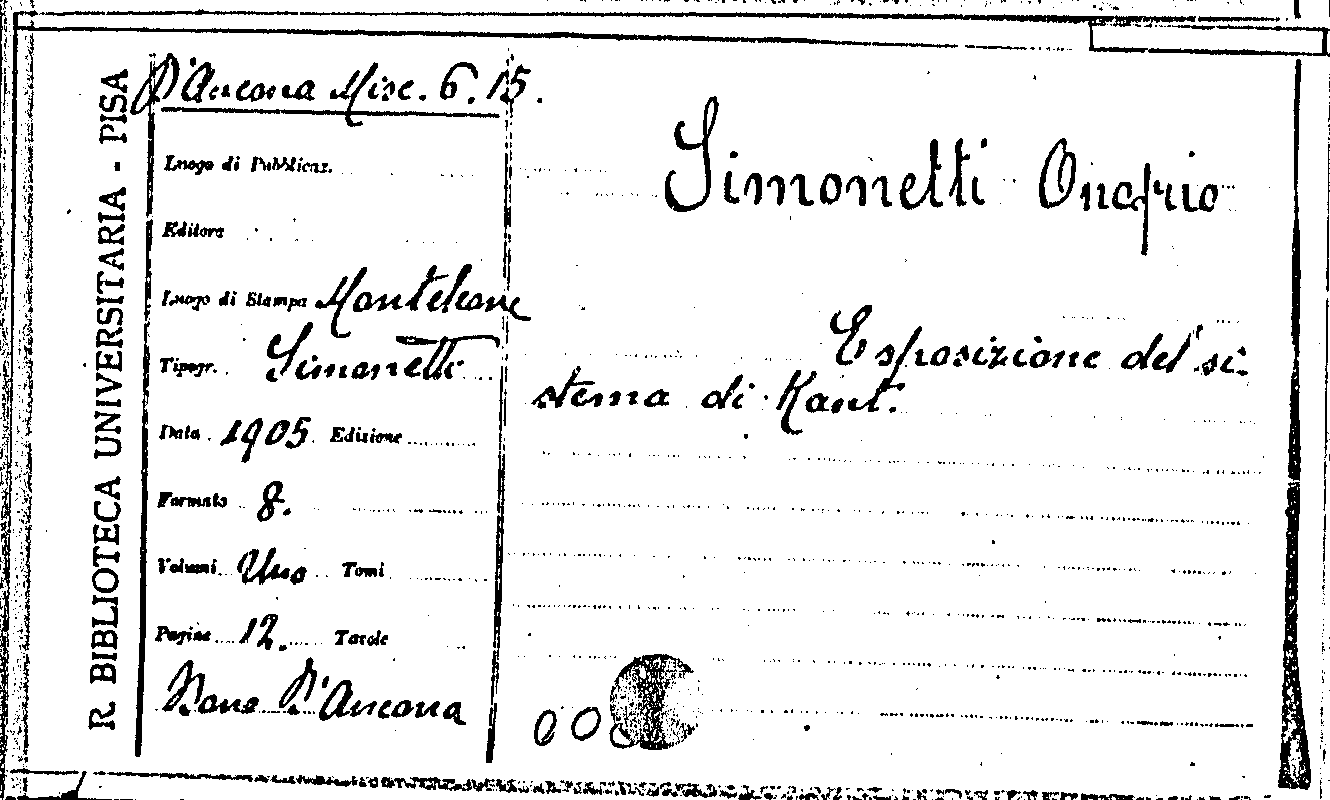 R BIBLIOTECA UNIVERSITARIA - PISA
D'Ancona Misc. 6. 15.
Luogo di Pubblicaz.
Editore
Luogo di Stampa Monteleone
Tipogr. Simonetti
Data 1905 Edizione
Formato 8.
Volumi Uno Tomi
Pagine 12. Tavole
Dono D'Ancona
Simonetti Onofrio
Esposizione del si-
stema di Kant.
00